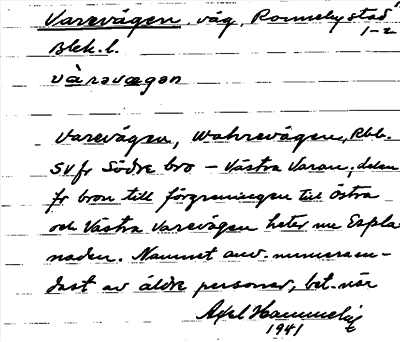 Varevägen, väg, Ronneby stad
1-2
Blek. l.
vàrəvægən
Varevägen, Wahrevägen, Rbl.
SV fr Södre bro – Västra Varan, delen
fr bron till förgreningen till Östra
och Västra Varevägen heter nu Espla-
naden. Namnet anv. numera en-
dast av äldre personer, bet. när
Axel Hammelig
1941